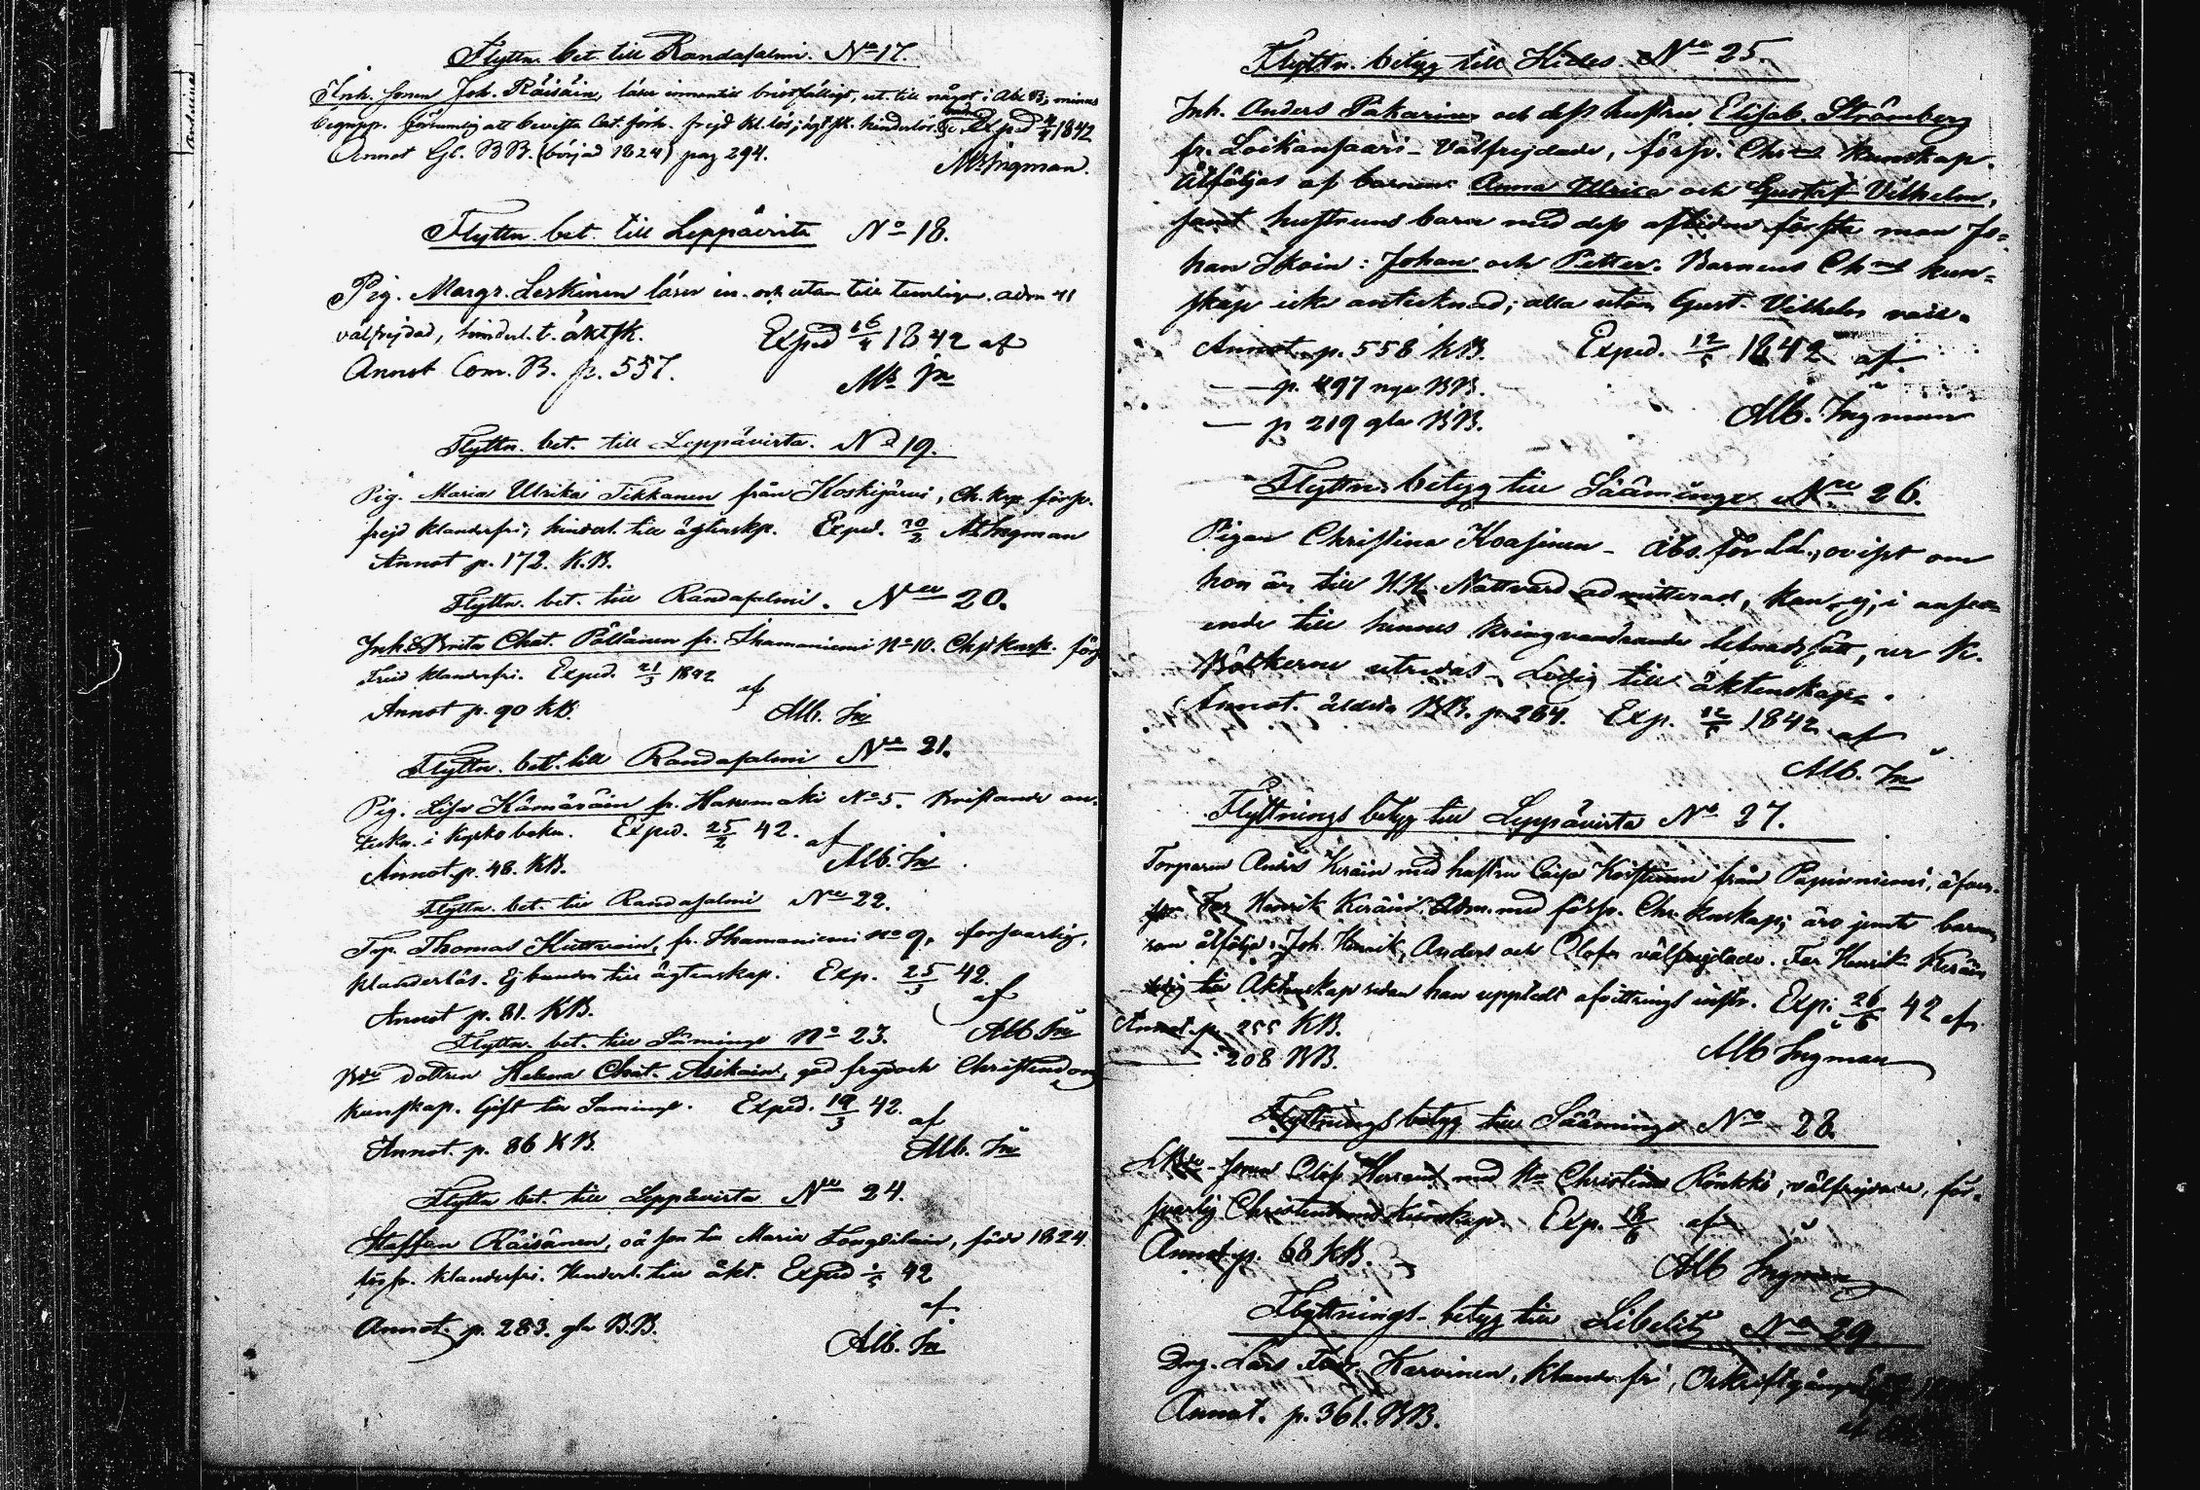 Flyttn. bet. till Randasalmi. No 17.
Inh. sonen Joh. Räisäin, läser innantill bristfälligt, ut. till något i Abc B; minus
begrepp. försumlig att bevista Cat. förh. frejd kl. lös; Exped 1842
Annot Gl. BB. (börjad 1824) pag 294.
Ingman.
Flyttn. bet. till Leppävirta No 18.
Pig. Margr. Leskinen läser in. och utan till temligen. adm 41
välfrejdad, hinderl. t. äktsk. Exped 16/4 1842 af
Annot Com. B. p. 557.
Flyttn. bet. till Leppävirta. No 19.
Pig. Maria Ulrika Tikkanen från Koskijärvi, Ch. ksp. försv.
frejd klanderfri; hinderl. till ägtenskp. Exped. 20/2 Ingman
Annot p. 172. K.B.
Flyttn. bet. till Randasalmi. No 20.
Inh. Brita Chat. fr. Ihamaniemi No 10. Chst kunsk. förs
Frejd klanderfri. Exped. 21/3 1842
af
Annot p. 90 KB. Alb. In
Flyttn. bet. till Randasalmi No 21.
Pig. Lisa Kämäräin fr. No 5. Kristendo an-
teckn. i kyrko boken. Exped. 25/2 42. af
Annot. p. 48. KB. Alb. In
Flyttn. bet. till Randasalmi No 22.
Trp. Thomas fr. Ihamaniemi No 9, försvarlig,
klanderlös. Ej bunden till ägtenskap. Exp. 25/3 42.
af
Annot p. 81. KB.
Alb In
Flyttn. bet. till Säminge No 23.
dottren Helena Christ. Asikain, god frejd och Christendoms
kunskap. Gift till Saminge. Exped. 19/3 42. af
Annot. p. 86 KB. Alb. In
Flyttn bet. till Leppävirta No 24.
Staffan Räisänen, oä son till Maria, född 1824
klanderfri. Hinderl. till äkt. Exped 42
af
Annot. p. 283. gla BB.
Alb. In
Flyttn. betyg till Kides No 25.
Inh. Anders Pakarinen och dess hustru Elisab. Strömberg
fr. Loikansaari – Välfrejdade, försv. Chr kunskap.
Åtföljas af barnen: Anna Ulrica och Gustaf Vilhelm,
samt hustruns barn med dess aflidne förste man Jo-
han Ikoin: Johan och Petter. Barnens Chms kun-
skap icke antecknad; alla utom Gust. Vilhelm
Annot. p. 558 KB. Exped. 12/5 1842 af
— p. 497 nya BB.
— p 219 gla BB. Alb. Ingman
Flyttn. betyg till Sääminge No 26.
Pigan Christina Koasinen – abs. för, ovisst om
hon är till H.H. Nattvard admitterad, kan ej, i anse-
ende till hennes kringvandrande lefnadssätt, ur K.
Böckerne utredas – Ledig till äktenskap.
Annot. äldsta BB. p. 264. Exp. 12/5 1842 af
Alb. In
Flyttnings betyg till Leppävirta No 27.
Torparen Anders Keräin med hustru Caisa från Papinniemi, äfven-
Far Henrik Keräin. Adm. med försv. Chr. kunskap; äro jemte barnen
som åtfölja: Joh. Henrik, Anders och Olof välfrejdade. Far Henrik Keräin
till Äktenskap sedan han upptedt afvittrings instr. Exp: 26/5 42 af
Annot. p. 255 KB.
208 BB. Alb Ingman
Flyttnings betyg till Sääminge No 28.
sonen Olof med Christina Rönkkö, välfrejdade, för-
svarlig Christendoms Kunskap. Exp. 18/6 af
Annot p. 68 KB. Alb Ingman
Flyttnings-betyg till Libelitz No 29
Dng. Lars Karvinen, klanderfri,
Annot. p. 361. BB.